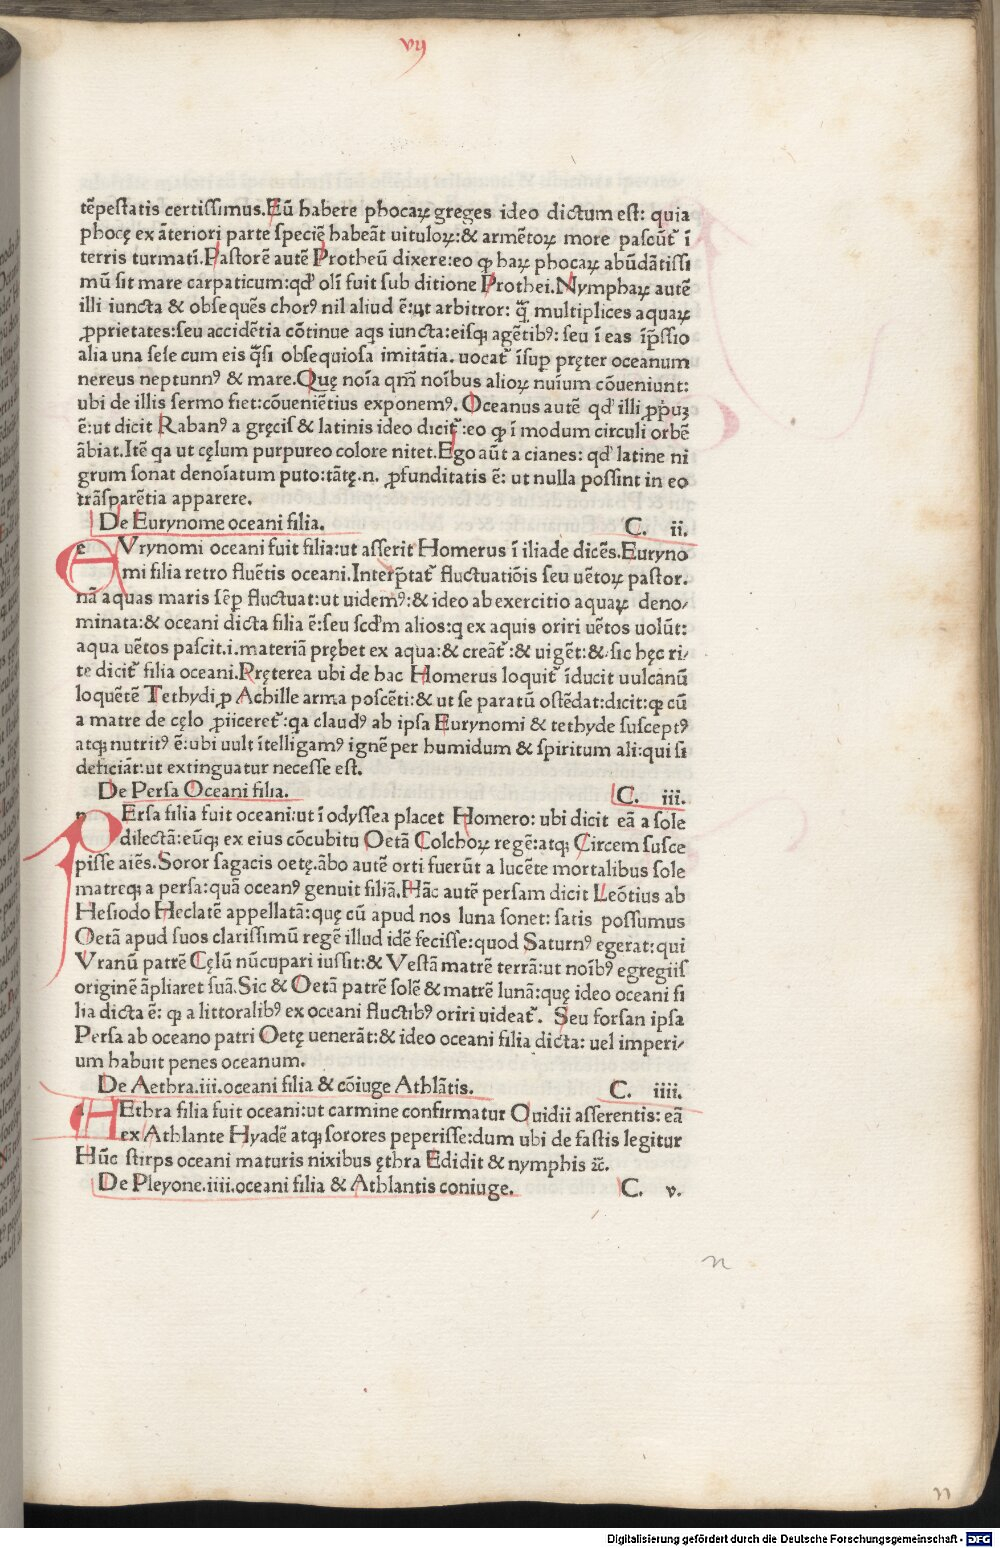 vij
tēpestatis certissimus.Eū habere phocaꝝ greges ideo dictum est: quia
phocę ex āteriori parte speciē habeāt uituloꝝ:& armētoꝝ more pascūt᷑ ī
terris turmatī.Pastorē autē Protheū dixere:eo ꝙ haꝝ phocaꝝ abūdātissi
mū sit mare carpaticum:qd' olī fuit sub ditione Prothei.Nymphaꝝ autē
illi iuncta & obsequēs chorꝰ nil aliud ē:ut arbitror: q̄ꝫ multiplices aquaꝝ
ꝓprietates:seu accidētia cōtinue aqs iuncta:eisqꝫ agētibꝰ: seu ī eas īp̄ssio
alia una sese cum eis q̄si obsequiosa imitātia. uocat᷑ īsup pręter oceanum
nereus neptunnꝰ & mare.Quę noīa qm̄ noībus alioꝝ nuīum cōueniunt:
ubi de illis sermo fiet:cōueniētius exponemꝰ. Oceanus autē qd' illi ꝓp̄uꝫ
ē:ut dicit Rabanꝰ a gręcis & latinis ideo dicit᷑:eo ꝙ ī modum circuli orbē
ābiat.Itē qa ut cęlum purpureo colore nitet.Ego aūt a cianes: qd' latine ni
grum sonat denoīatum puto:tātę.n. ꝓfunditatis ē: ut nulla possint in eo
trāsparētia apparere.
De Eurynome oceani filia. C. ii.
e VRynomi oceani fuit filia:ut asserit Homerus ī iliade dicēs.Euryno
mi filia retro fluētis oceani.Interp̄tat᷑ fluctuatiōis seu uētoꝝ pastor.
nā aquas maris sēp fluctuat:ut uidemꝰ:& ideo ab exercitio aquaꝝ deno-
minata:& oceani dicta filia ē:seu scd'm alios:q ex aquis oriri uētos uolūt:
aqua uētos pascit.i.materiā prębet ex aqua:& creāt᷑:& uigēt:& sic hęc ri-
te dicit᷑ filia oceani.Pręterea ubi de hac Homerus loquit᷑ īducit uulcanū
loquētē Tethydi ꝓ Achille arma poscēti:& ut se paratū ostēdat:dicit:ꝙ cū
a matre de cęlo ꝓiiceret᷑:qa claudꝰ ab ipsa Eurynomi & tethyde susceptꝰ
atqꝫ nutritꝰ ē:ubi uult ītelligamꝰ ignē per humidum & spiritum ali:qui si
deficiāt:ut extinguatur necesse est.
De Persa Oceani filia. C. iii.
p Ersa filia fuit oceani:ut ī odyssea placet Homero: ubi dicit eā a sole
dilectā:eūqꝫ ex eius cōcubitu Oetā Colchoꝝ regē:atqꝫ Circem susce
pisse aiēs.Soror sagacis oetę.ābo autē orti fuerūt a lucēte mortalibus sole
matreqꝫ a persa:quā oceanꝰ genuit filiā.Hāc autē persam dicit Leōtius ab
Hesiodo Heclatē appellatā:quę cū apud nos luna sonet: satis possumus
Oetā apud suos clarissimū regē illud idē fecisse:quod Saturnꝰ egerat:qui
Vranū patrē Cęlū nūcupari iussit:& Vestā matrē terrā:ut noībꝰ egregiis
originē āpliaret suā.Sic & Oetā patrē solē & matrē lunā:quę ideo oceani fi
lia dicta ē: ꝙ a littoralibꝰ ex oceani fluctibꝰ oriri uideat᷑. Seu forsan ipsa
Persa ab oceano patri Oetę uenerāt:& ideo oceani filia dicta: uel imperi-
um habuit penes oceanum.
De Aethra.iii.oceani filia & cōiuge Athlātis. C. iiii.
a Ethra filia fuit oceani:ut carmine confirmatur Ouidii asserentis: eā
ex Athlante Hyadē atqꝫ sorores peperisse:dum ubi de fastis legitur
Hūc stirps oceani maturis nixibus ęthra Edidit & nymphis ⁊c̄.
De Pleyone.iiii.oceani filia & Athlantis coniuge. C. v.
n
11
Digitalisierung gefördert durch die Deutsche Forschungsgemeinschaft - DFG